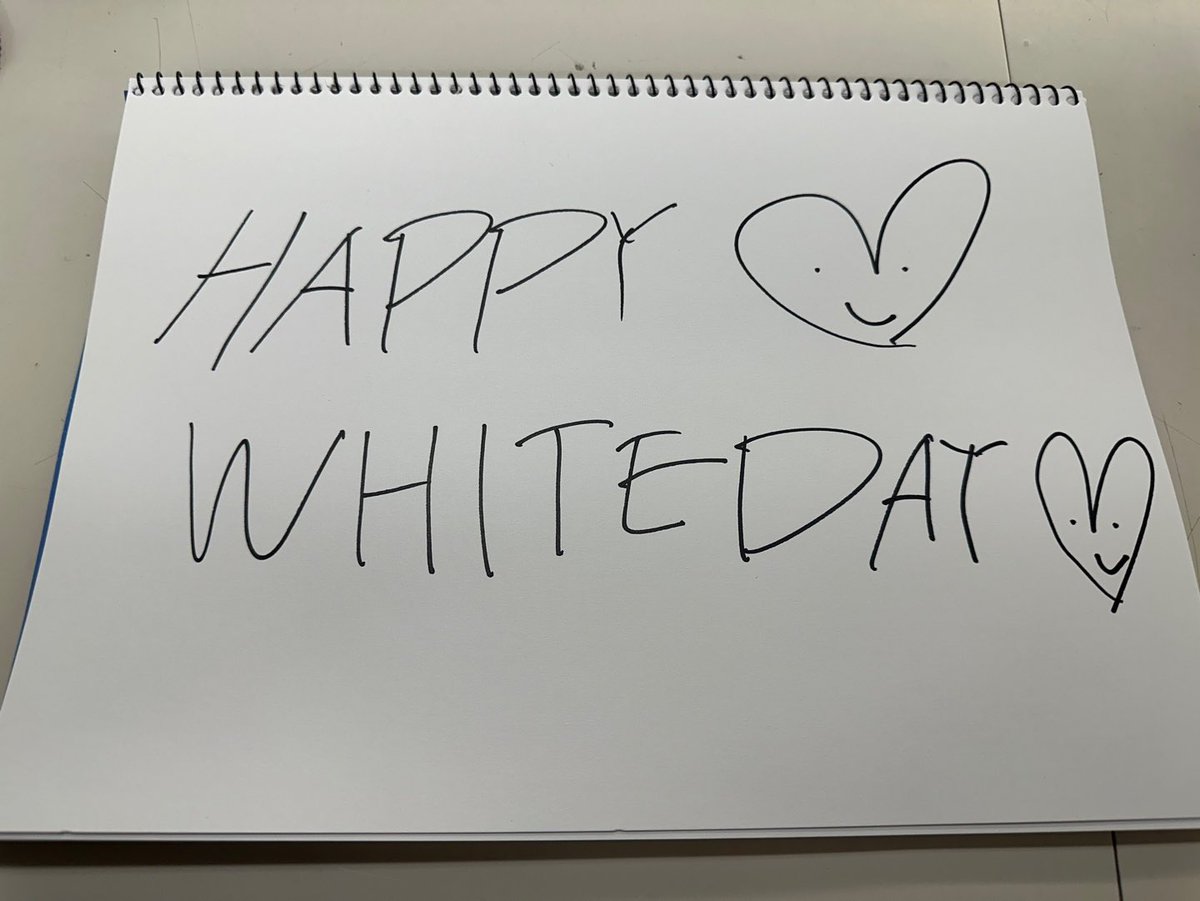 HAPPY
WHITEDAY